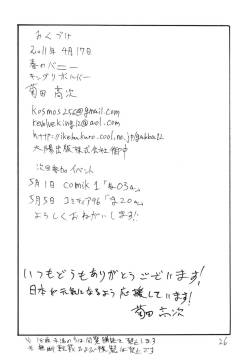 おくづけ
2011年4月17日
春のバニー
キングリボルバー
菊田高次
kosmos256@gmail.com
revolveking12@aol.com
太陽出版株式会社御中
次回参加イベント
5月1日 comik1「も03a」
5月5日 コミティア96「ま20a」
よろしくおねがいします!
いつもどうもありがとうございます!
日本が元気になるよう応援しています!
菊田高次
26